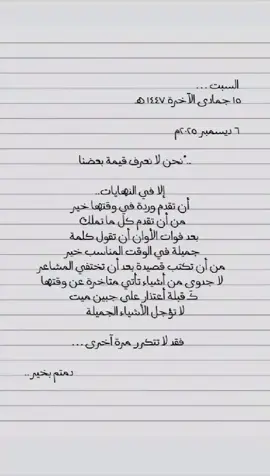 السبت ...
١٥ جمادى الآخرة ١٤٤٧ هـ
٦ ديسمبر ٢٠٢٥م
.."نحن لا نعرف قيمة بعضنا
إلا في النهايات..
أن تقدم وردة في وقتها خير
من أن تقدم كل ما تملك
بعد فوات الأوان أن تقول كلمة
جميلة في الوقت المناسب خير
من أن تكتب قصيدة بعد أن تختفي المشاعر
لا جدوى من أشياء تأتي متاخرة عن وقتها
كـ قبلة أعتذار على جبين ميت
لا تؤجل الأشياء الجميلة
فقد لا تتكرر مرة آخرى ...
دمتم بخير ..